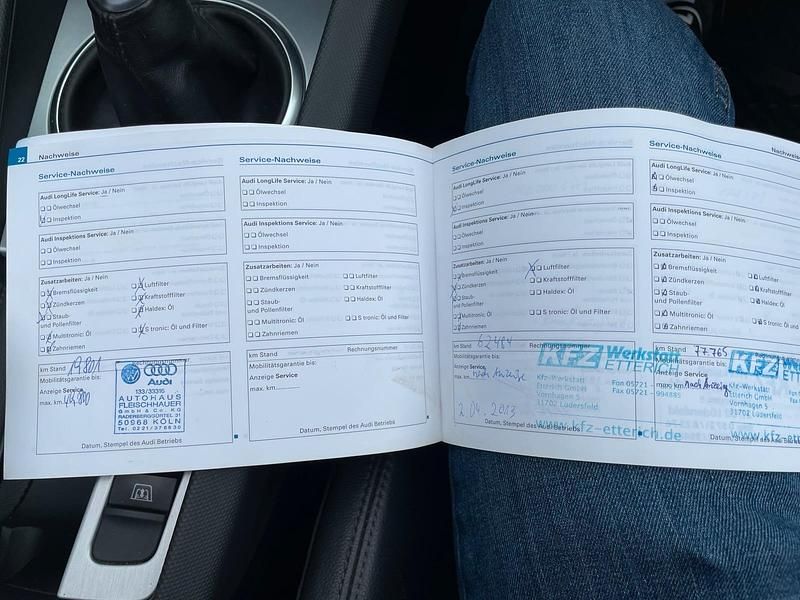 22
Nachweise
Service-Nachweise
Audi LongLife Service: Ja / Nein
Ölwechsel
Inspektion
Audi Inspektions Service: Ja / Nein
Ölwechsel
Inspektion
Zusatzarbeiten: Ja / Nein
Bremsflüssigkeit
Luftfilter
Zündkerzen
Kraftstofffilter
Staub-
und Pollenfilter
Haldex: Öl
Multitronic: Öl
S tronic: Öl und Filter
Zahnriemen
km Stand 19.801
Rechnungsnummer
Mobilitätsgarantie bis:
Anzeige Service
max. km
Audi
133/33315
AUTOHAUS
FLEISCHHAUER
GmbH & Co. KG
RADERBERGGÜRTEL 31
50968 KÖLN
Datum, Stempel des Audi Betriebs
Service-Nachweise
Audi LongLife Service: Ja / Nein
Ölwechsel
Inspektion
Audi Inspektions Service: Ja / Nein
Ölwechsel
Inspektion
Zusatzarbeiten: Ja / Nein
Bremsflüssigkeit
Luftfilter
Zündkerzen
Kraftstofffilter
Staub-
und Pollenfilter
Haldex: Öl
Multitronic: Öl
S tronic: Öl und Filter
Zahnriemen
km Stand
Rechnungsnummer
Mobilitätsgarantie bis:
Anzeige Service
max. km
Datum, Stempel des Audi Betriebs
Service-Nachweise
Audi LongLife Service: Ja / Nein
Ölwechsel
Inspektion
Audi Inspektions Service: Ja / Nein
Ölwechsel
Inspektion
Zusatzarbeiten: Ja / Nein
Bremsflüssigkeit
Luftfilter
Zündkerzen
Kraftstofffilter
Staub-
und Pollenfilter
Haldex: Öl
Multitronic: Öl
S tronic: Öl und Filter
Zahnriemen
km Stand
Rechnungsnummer
Mobilitätsgarantie bis:
Anzeige Service
max. km nach Anzeige
KFZ Werkstatt
ETTERICH
Kfz-Werkstatt
Etterich GmbH
Vornhagen 5
31702 Lüdersfeld
Fon 05721 -
Fax 05721 - 994885
2.04.2013
Datum, Stempel des Audi Betriebs
www.kfz-etterich.de
Nachweise
Service-Nachweise
Audi LongLife Service: Ja / Nein
Ölwechsel
Inspektion
Audi Inspektions Service: Ja / Nein
Ölwechsel
Inspektion
Zusatzarbeiten: Ja / Nein
Bremsflüssigkeit
Luftfilter
Zündkerzen
Kraftstofffilter
Staub-
und Pollenfilter
Haldex: Öl
Multitronic: Öl
S tronic: Öl und Filter
Zahnriemen
km Stand 77.765
Mobilitätsgarantie bis:
Anzeige Service
max. km nach Anzeige
KFZ
Kfz-Werkstatt
Etterich GmbH
Vornhagen 5
31702 Lüdersfeld
Datum, Stempel des Audi
www.kfz-et